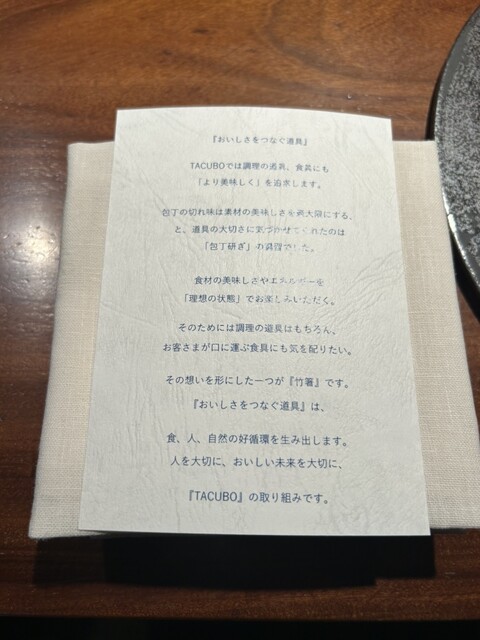 『おいしさをつなぐ道具』
TACUBOでは調理の道具、食具にも
「より美味しく」を追求します。
包丁の切れ味は素材の美味しさを最大限にする、
と、道具の大切さに気づかせてくれたのは
「包丁研ぎ」の
食材の美味しさやエネルギーを
「理想の状態」でお楽しみいただく。
そのためには調理の道具はもちろん、
お客さまが口に運ぶ食具にも気を配りたい。
その想いを形にした一つが『竹箸』です。
『おいしさをつなぐ道具』は、
食、人、自然の好循環を生み出します。
人を大切に、おいしい未来を大切に、
『TACUBO』の取り組みです。